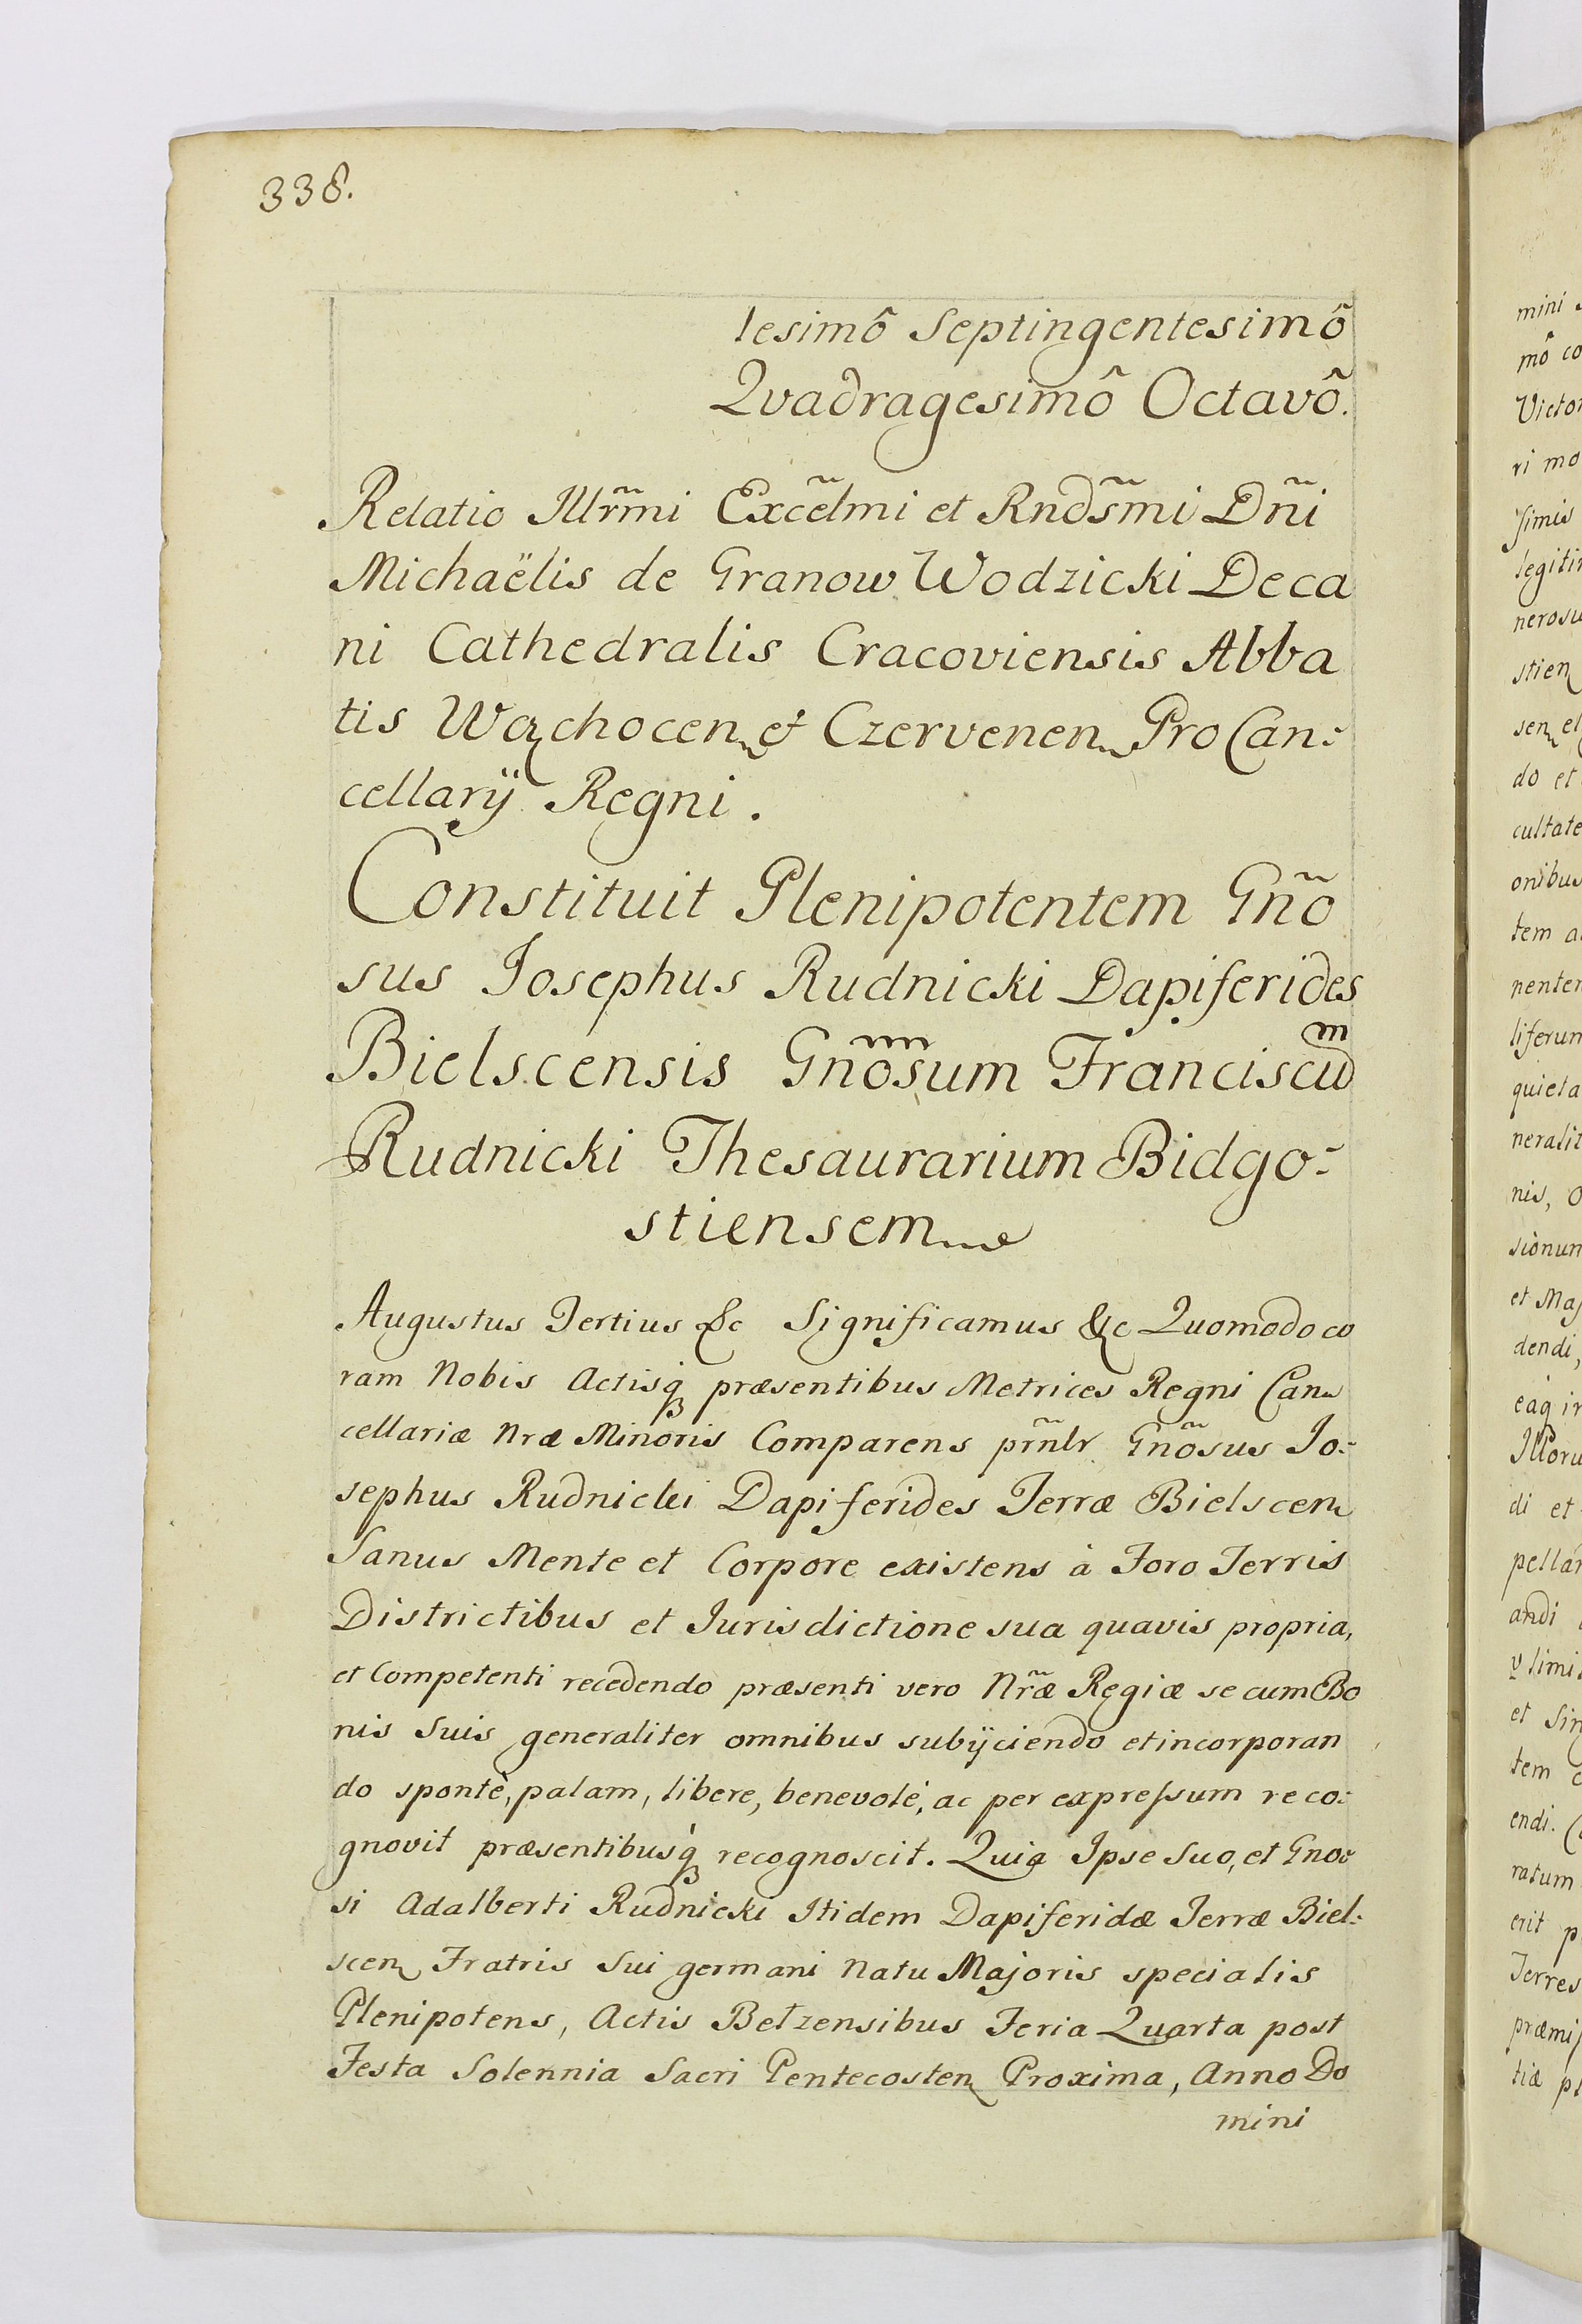 338.
lesimô Septingentesimô
Qvadragesimô Octavô.
Relatio Illr̃mi Excẽlmi et Rnds̃mi Dñi
Michaëlis de Granow Wodzicki Deca
ni Cathedralis Cracoviensis Abba
tis Wąchocen et Czervenen Pro Can:
cellarÿ Regni.
Constituit Plenipotentem Gnõ
sus Josephus Rudnicki Dapiferides
Bielscensis Gnõsum Franciscum
Rudnicki Thesaurarium Bidgo:
stiensem
Augustus Tertius &c Significamus &c Quomodo co
ram Nobis Actisq́ præsentibus Metrices Regni Can
cellariæ Nræ Minoris Comparens prñlr Gnõsus Jo:
sephus Rudnicki Dapiferides Terræ Bielscen
Sanus Mente et Corpore existens à Foro Terris
Districtibus et Jurisdictione sua quavis propria,
et Competenti recedendo præsenti vero Nr̃æ Regiæ se cum Bo
nis Suis generaliter omnibus subÿciendo et incorporan
do spontè, palam, libere, benevolé, ac per expreſsum reco:
gnovit præsentibusq́ recognoscit. Quia Ipse Suo, et Gno:
si Adalberti Rudnicki Itidem Dapiferidæ Terræ Biel:
scen Fratris Sui germani Natu Majoris specialis
Plenipotens, Actis Betzensibus Feria Quarta post
Festa Solennia Sacri Pentecosten Proxima, Anno Do
mini
mini
mô co
Victor
ri mo
simis
legitim
nerosu
stien
sen et
do et
cultate
onibus
tem a
nenter
liferum
quieta
neralit
nis, O
sionum
et Maj
dendi,
eaq in
Illoru
di et
pellan
andi
et Sin
tem
endi.
ratum
erit p
Terres
præmiſ
tiæ